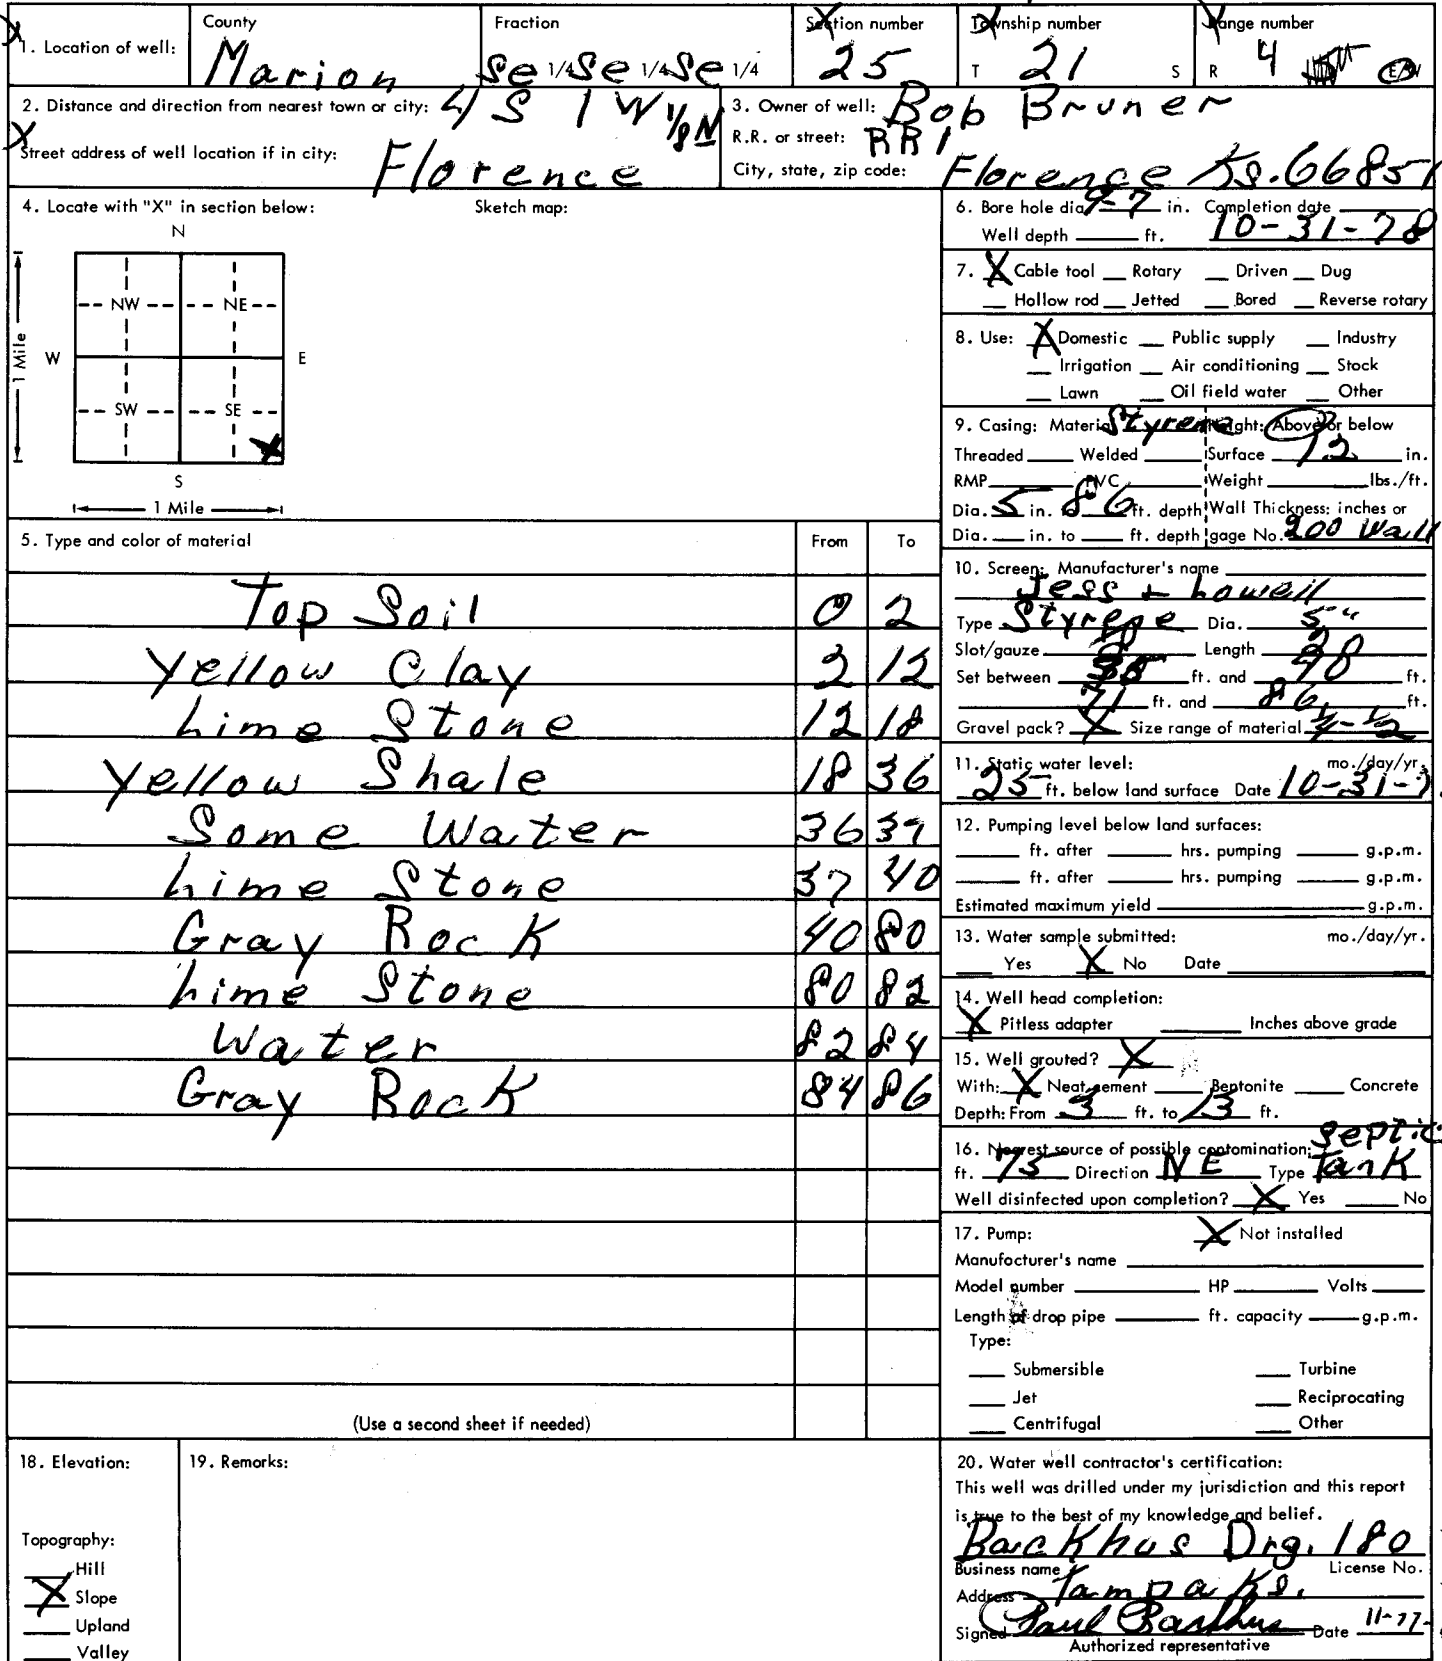 County Fraction Section number Township number Range number
1. Location of well: Marion Se 1/4 Se 1/4 Se 1/4 25 T 21 S R 4 E/W
2. Distance and direction from nearest town or city: 4 S 1 W 1/8 N
Street address of well location if in city: Florence
3. Owner of well: Bob Bruner
R.R. or street: RR1
City, state, zip code: Florence Ks. 66851
4. Locate with "X" in section below: Sketch map:
N
NW NE
W E
1 Mile
SW SE
X
S
1 Mile
5. Type and color of material From To
Top Soil 0 2
Yellow Clay 2 12
Lime Stone 12 18
Yellow Shale 18 36
Some Water 36 37
Lime Stone 37 40
Gray Rock 40 80
Lime Stone 80 82
Water 82 84
Gray Rock 84 86
(Use a second sheet if needed)
6. Bore hole dia. 9-7 in. Completion date
Well depth ft. 10-31-78
7. X Cable tool Rotary Driven Dug
Hollow rod Jetted Bored Reverse rotary
8. Use: X Domestic Public supply Industry
Irrigation Air conditioning Stock
Lawn Oil field water Other
9. Casing: Material Styrene Height: Above or below
Threaded Welded Surface 12 in.
RMP PVC Weight lbs./ft.
Dia. 5 in. to 86 ft. depth Wall Thickness: inches or
Dia. in. to ft. depth gage No. 200 Wall
10. Screen: Manufacturer's name
Jess + Lowell
Type Styrene Dia. 5"
Slot/gauze Length
Set between ft. and ft.
71 ft. and 86 ft.
Gravel pack? X Size range of material 1/4-1/2
11. Static water level: mo./day/yr.
25 ft. below land surface Date 10-31-7
12. Pumping level below land surfaces:
ft. after hrs. pumping g.p.m.
ft. after hrs. pumping g.p.m.
Estimated maximum yield g.p.m.
13. Water sample submitted: mo./day/yr.
Yes X No Date
14. Well head completion:
X Pitless adapter Inches above grade
15. Well grouted? X
With: X Neat cement Bentonite Concrete
Depth: From 3 ft. to 13 ft.
16. Nearest source of possible contomination: Septic
ft. 75 Direction NE Type Tank
Well disinfected upon completion? X Yes No
17. Pump: X Not installed
Manufocturer's name
Model number HP Volts
Length of drop pipe ft. capacity g.p.m.
Type:
Submersible Turbine
Jet Reciprocating
Centrifugal Other
18. Elevation:
Topography:
Hill
X Slope
Upland
Valley
19. Remarks:
20. Water well contractor's certification:
This well was drilled under my jurisdiction and this report
is true to the best of my knowledge and belief.
Backhus Drg. 180
Business name License No.
Address Tampa Ks.
Signed Paul Backhus Date 11-77-
Authorized representative